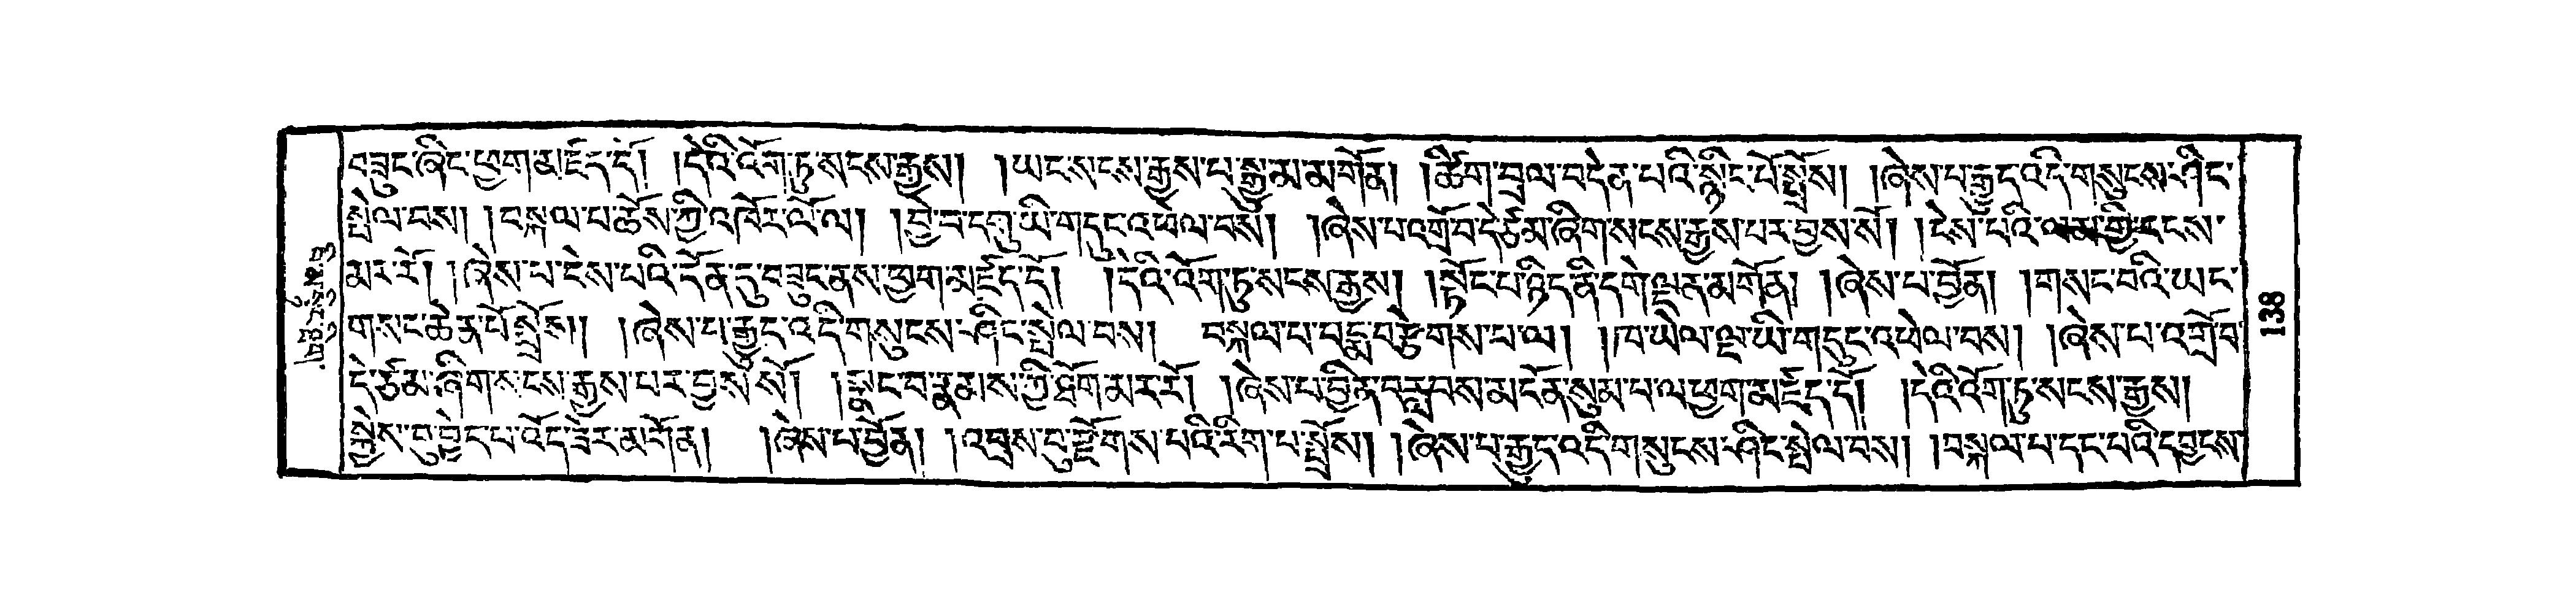 བཟུང་ཞིང་ཕྱག་མཛད་དོ། །དེའི་འོག་ཏུ་སངས་རྒྱས། །ཡང་སངས་རྒྱས་པ་སྒྱུ་མ་མགོན། །ཚིག་བྲལ་བདེན་པའི་སྙིང་པོ་སྤྲོས། །ཞེས་པ་རྒྱུད་འདི་གསུངས་ཤིང་
སྤེལ་བས། །བསྐལ་པ་ཆོས་ཀྱི་འཁོར་ལོ་ལ། །བྱེ་བ་དགུ་ཡི་གདུང་འཕེལ་བསོ། །ཞེས་པ་འགྲོ་བ་དེ་ཙམ་ཞིག་སངས་རྒྱས་པར་བྱས་སོ། །ངེས་པའི་ལམ་གྱི་དངས་
མར་རོ། །ཞེས་པ་ངེས་པའི་དོན་དུ་བཟུང་ནས་ཕྱག་མཛད་དོ། །དེའི་འོག་ཏུ་སངས་རྒྱས། །སྟོང་པ་ཉིད་ནི་དགེ་ལྡན་མགོན། །ཞེས་པ་བྱོན། །གསང་བའི་ཡང་
གསང་ཆེན་པོ་སྤྲོས།། །ཞེས་པ་རྒྱུད་འདི་གསུངས་ཤིང་སྤེལ་བས། བསྐལ་པ་པདྨ་བརྩེགས་པ་ལ། །ཁ་ཡེལ་ལྔ་ཡི་གདུང་འཕེལ་བས། །ཞེས་པ་འགྲོ་བ་
དེ་ཙམ་ཞིག་སངས་རྒྱས་པར་བྱས་སོ། །སྣང་བ་རྣམས་ཀྱི་ཐོག་མར་རོ། །ཞེས་པ་བྱིན་བརླབས་མངོན་སུམ་པ་ལ་ཕྱག་མཛད་དོ། །དེའི་འོག་ཏུ་སངས་རྒྱས།
སྐྱེས་བུ་བྱེད་པ་འོད་ཟེར་མགོན། །ཞེས་པ་བྱོན། །འབྲས་བུ་རྫོགས་པའི་རིག་པ་སྤྲོས། །ཞེས་པ་རྒྱུད་འདི་གསུངས་ཤིང་སྤེལ་བས། །བསྐལ་པ་དང་པའི་དབྱངས་
138